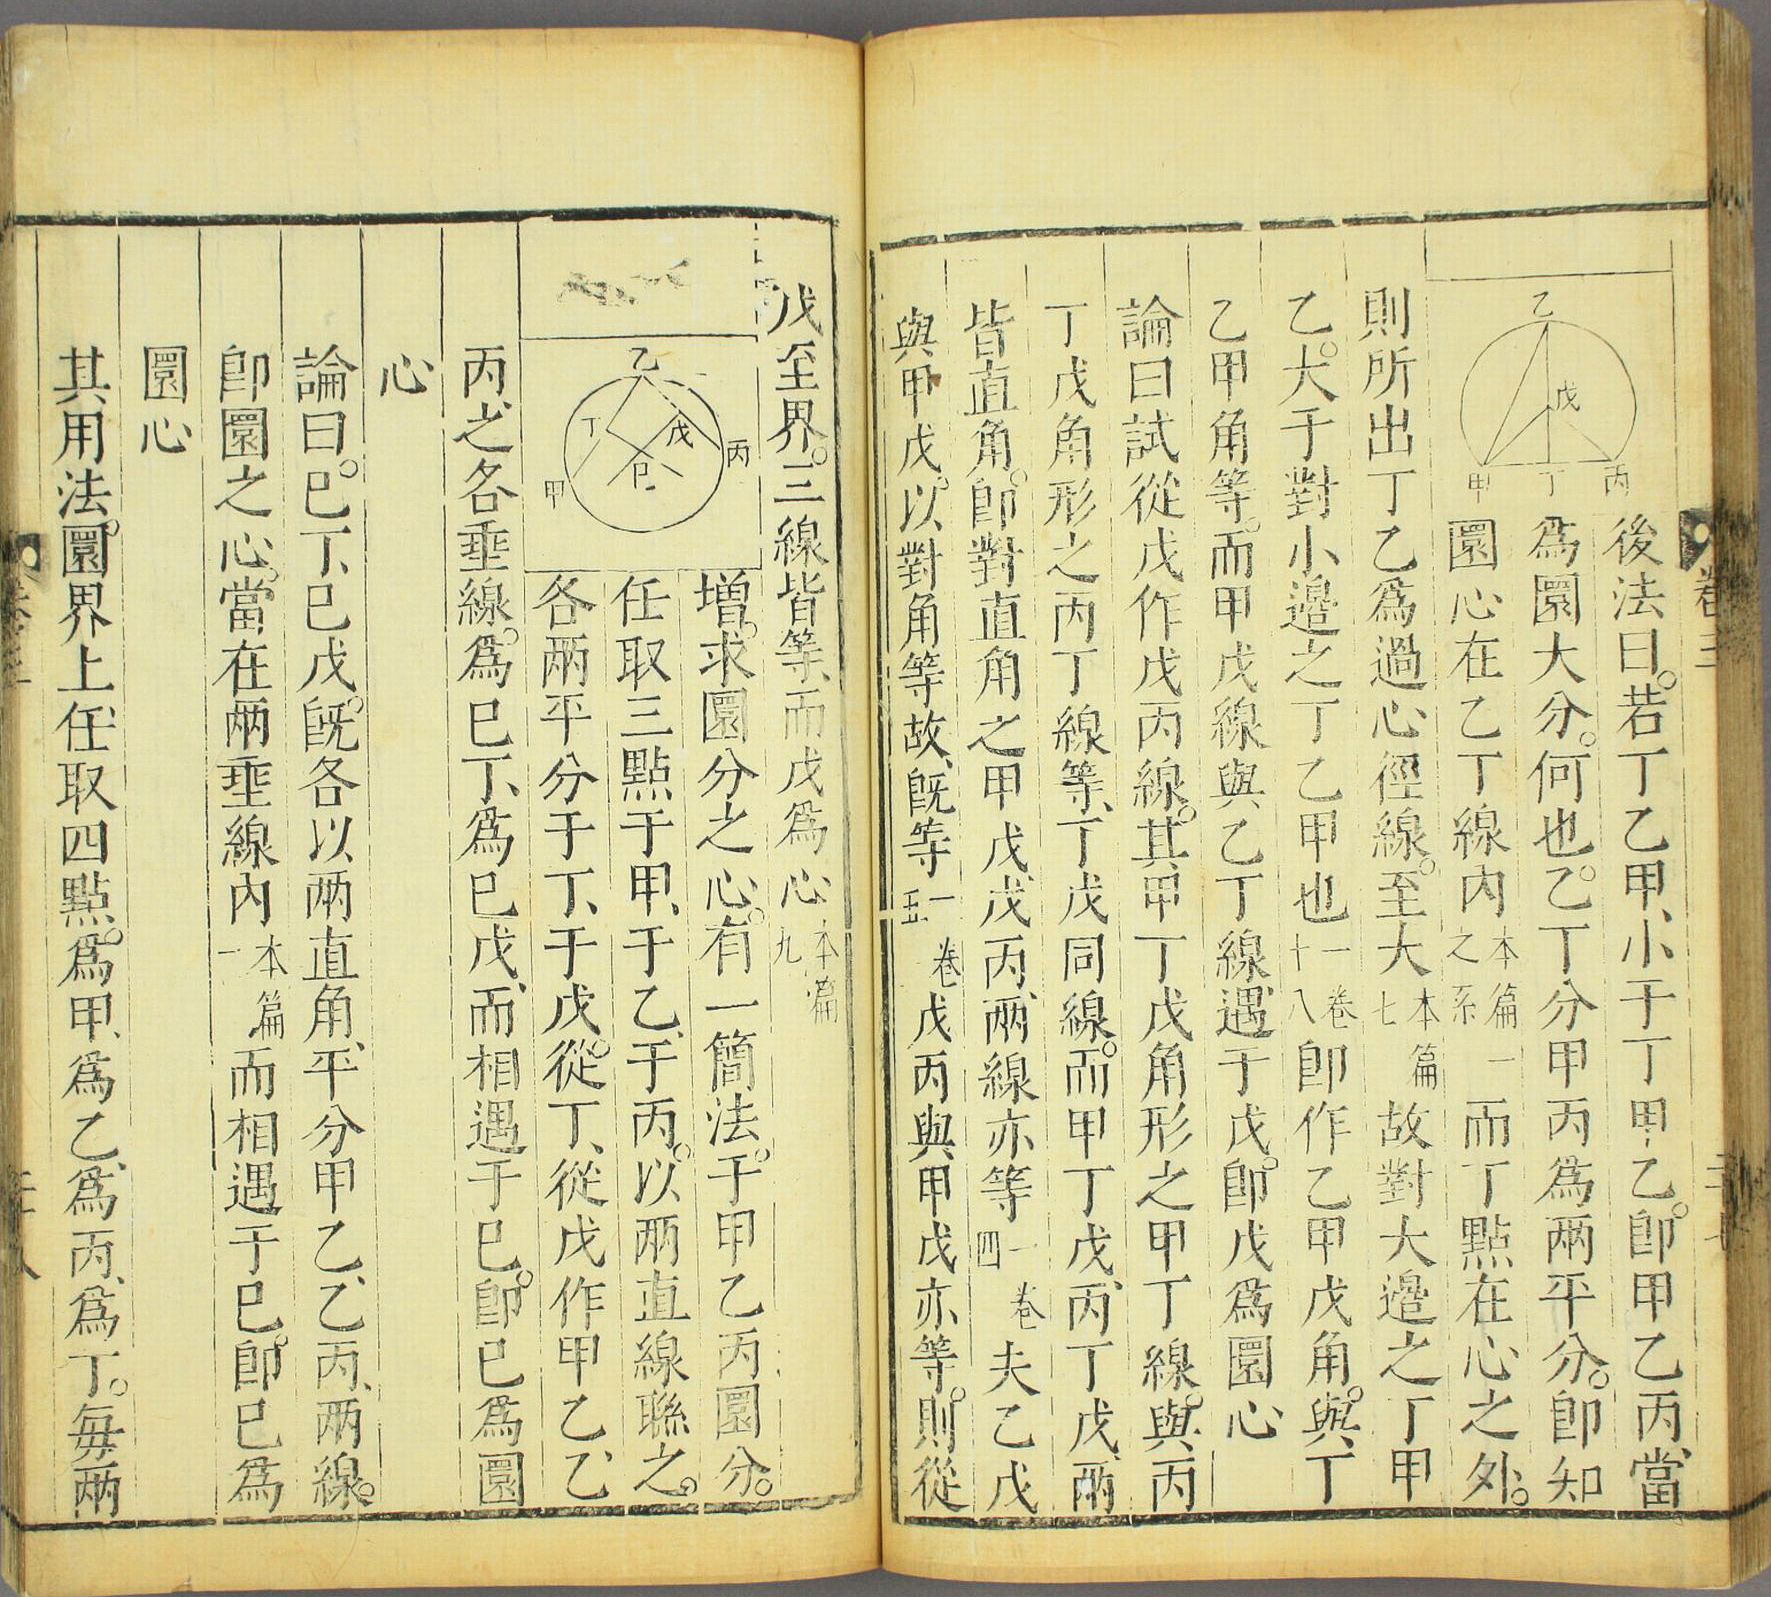 乙
戊
甲 丁 丙
後法曰。若丁乙甲、小于丁甲乙。卽甲乙丙、當
為圜大分。何也。乙丁分甲丙為兩平分。卽知
圜心在乙丁線內本篇一之系而丁點在心之外。
則所出丁乙為過心徑線。至大本篇七故對大邊之丁甲
乙。大于對小邊之丁乙甲也一卷十八卽作乙甲戊角。與丁
乙甲角等。而甲戊線與乙丁線、遇于戊。卽戊為圜心
論曰試從戊作戊丙線。其甲丁戊角形之甲丁線。與丙
丁戊角形之丙丁線等、丁戊同線。而甲丁戊、丙丁戊、兩
皆直角。卽對直角之甲戊、戊丙、兩線亦等一卷四夫乙戊
與甲戊。以對角等故、旣等一卷五戊丙與甲戊亦等。則從
戊至界。三線皆等、而戊為心本篇九
乙
丁 戊 丙
己
甲
增。求圜分之心。有一簡法。于甲乙丙圜分。
任取三點于甲、于乙、于丙。以兩直線聯之。
各兩平分于丁、于戊。從丁、從戊作甲乙、乙
丙、之各垂線。為巳丁、為巳戊、而相遇于巳。卽巳為圜
心
論曰。巳丁、巳戊。旣各以兩直角、平分甲乙、乙丙、兩線。
卽圜之心。當在兩垂線內本篇一而相遇于巳。卽巳為
圜心
其用法。圜界上任取四點。為甲、為乙、為丙、為丁。每兩
卷三